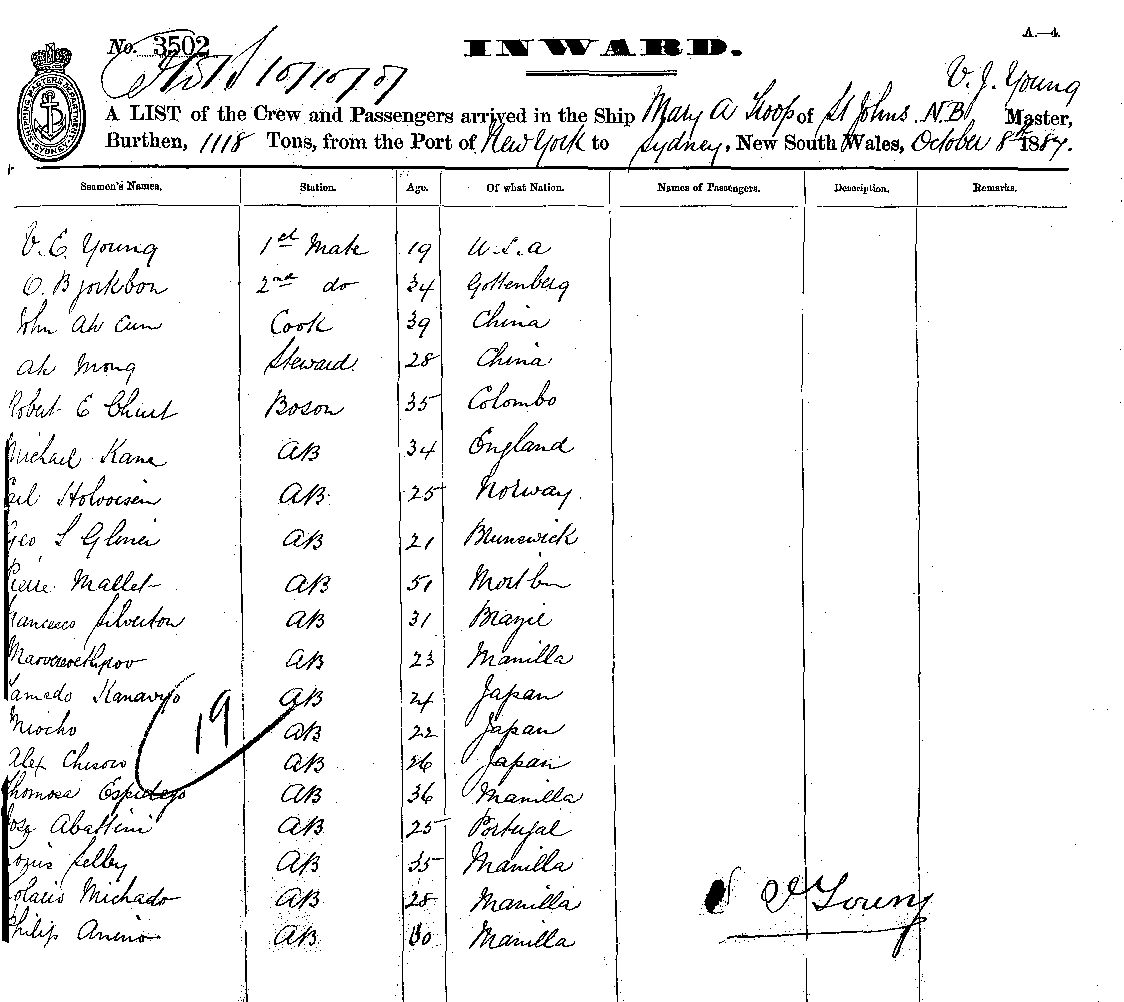 A.—4.
No. 3502 INWARD.
10/10/87
V. J. Young
A LIST of the Crew and Passengers arrived in the Ship Mary A Troop of St Johns N.B. Master,
Burthen, 1118 Tons, from the Port of New York to Sydney, New South Wales, October 8th 1887.
Seamen's Names. Station. Age. Of what Nation. Names of Passengers. Description. Remarks.
V. E. Young 1st Mate 19 U.S.A
O. Bjorkbon 2nd do 34 Gottenberg
John Ah Cum Cook 39 China
Ah Mong Steward 28 China
Robert E Chust Boson 35 Colombo
Michael Kane AB 34 England
AB 25 Norway.
Geo S AB 21 Brunswick
Pierre Mallet AB 51
Francesco Silverton AB 31 Brazil
AB 23 Manilla
Kanavijo AB 24 Japan
Miocho AB 22 Japan
19
Alex AB 26 Japan
Thomosa Espidejo AB 36 Manilla
Jose Abattini AB 25 Portugal
Louis Selby AB 35 Manilla
Michado AB 28 Manilla
Philip Anino AB 30 Manilla
V J Young